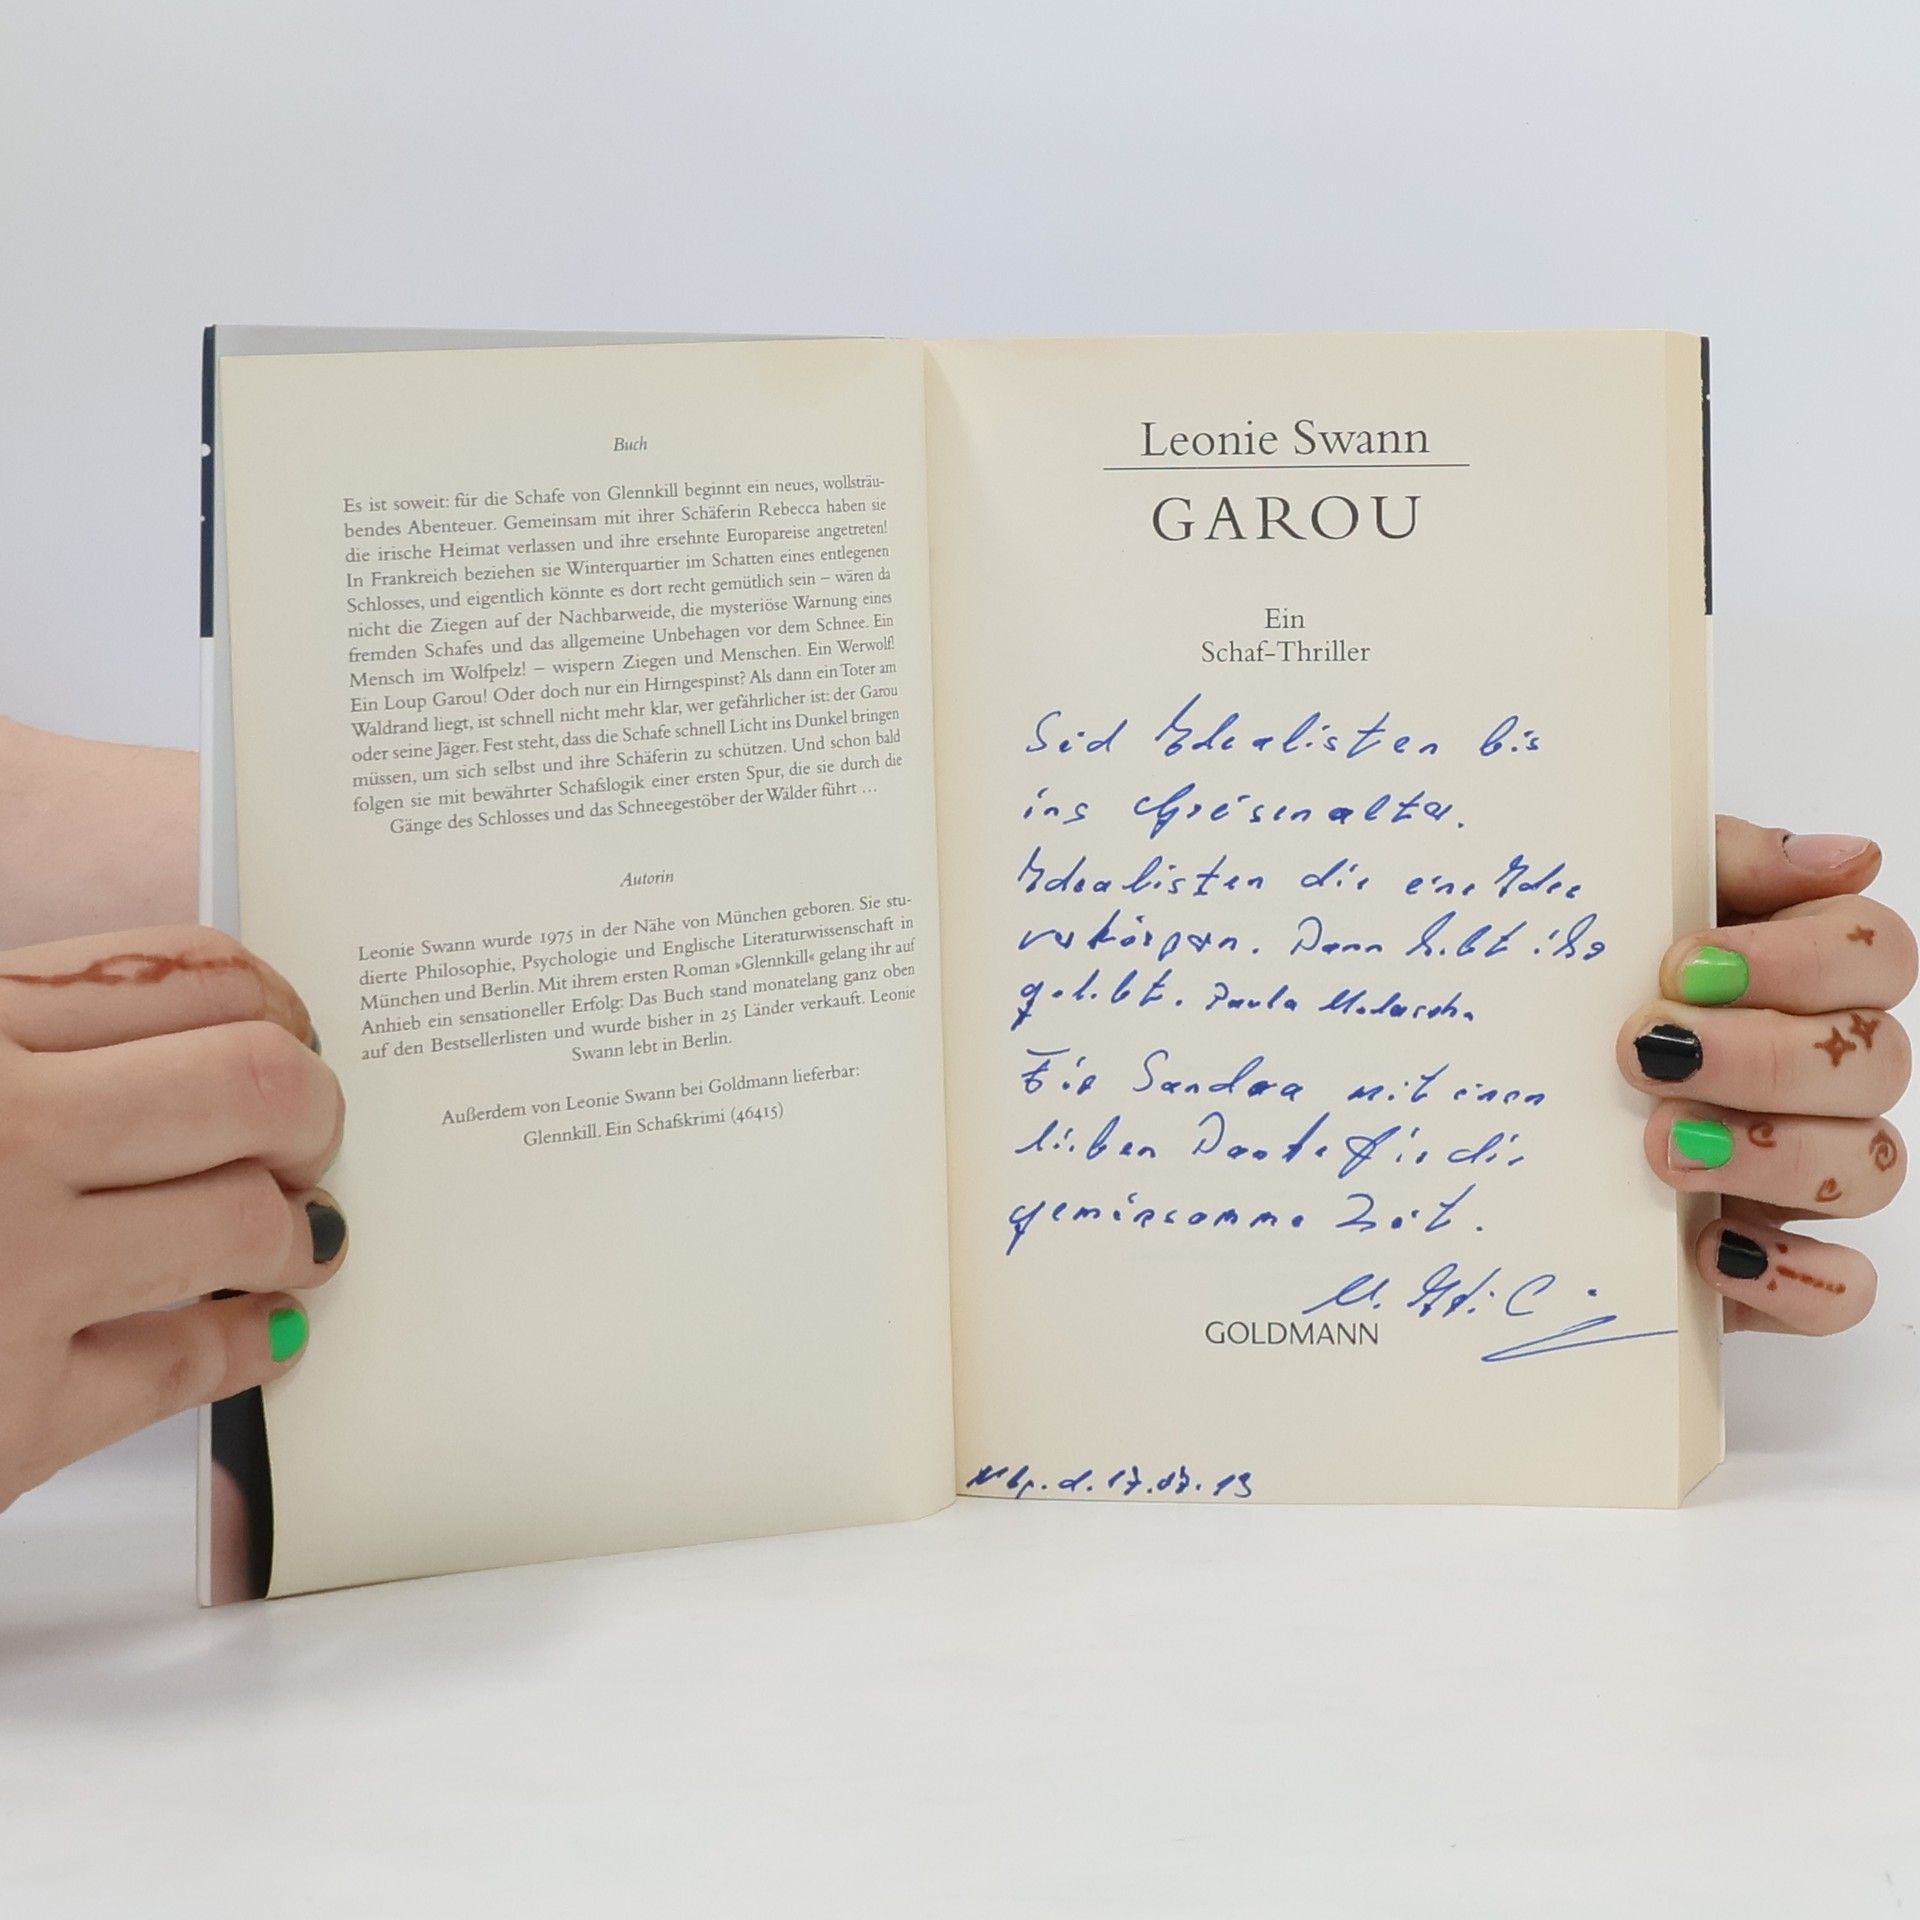 Buch
Es ist soweit: für die Schafe von Glennkill beginnt ein neues, wollsträu-
bendes Abenteuer. Gemeinsam mit ihrer Schäferin Rebecca haben sie
die irische Heimat verlassen und ihre ersehnte Europareise angetreten!
In Frankreich beziehen sie Winterquartier im Schatten eines entlegenen
Schlosses, und eigentlich könnte es dort recht gemütlich sein – wären da
nicht die Ziegen auf der Nachbarweide, die mysteriöse Warnung eines
fremden Schafes und das allgemeine Unbehagen vor dem Schnee. Ein
Mensch im Wolfpelz! – wispern Ziegen und Menschen. Ein Werwolf!
Ein Loup Garou! Oder doch nur ein Hirngespinst? Als dann ein Toter am
Waldrand liegt, ist schnell nicht mehr klar, wer gefährlicher ist: der Garou
oder seine Jäger. Fest steht, dass die Schafe schnell Licht ins Dunkel bringen
müssen, um sich selbst und ihre Schäferin zu schützen. Und schon bald
folgen sie mit bewährter Schafslogik einer ersten Spur, die sie durch die
Gänge des Schlosses und das Schneegestöber der Wälder führt ...
Autorin
Leonie Swann wurde 1975 in der Nähe von München geboren. Sie stu-
dierte Philosophie, Psychologie und Englische Literaturwissenschaft in
München und Berlin. Mit ihrem ersten Roman »Glennkill« gelang ihr auf
Anhieb ein sensationeller Erfolg: Das Buch stand monatelang ganz oben
auf den Bestsellerlisten und wurde bisher in 25 Länder verkauft. Leonie
Swann lebt in Berlin.
Außerdem von Leonie Swann bei Goldmann lieferbar:
Glennkill. Ein Schafskrimi (46415)
Leonie Swann
GAROU
Ein
Schaf-Thriller
Seid Idealisten bis
ins Greisenalter.
Idealisten die eine Idee
verkörpern. Dann habt ihr
gelebt. Paula
Für Sandra mit einen
lieben Danke für die
gemeinsamme Zeit.
GOLDMANN
Nbg. d. 17.07.13